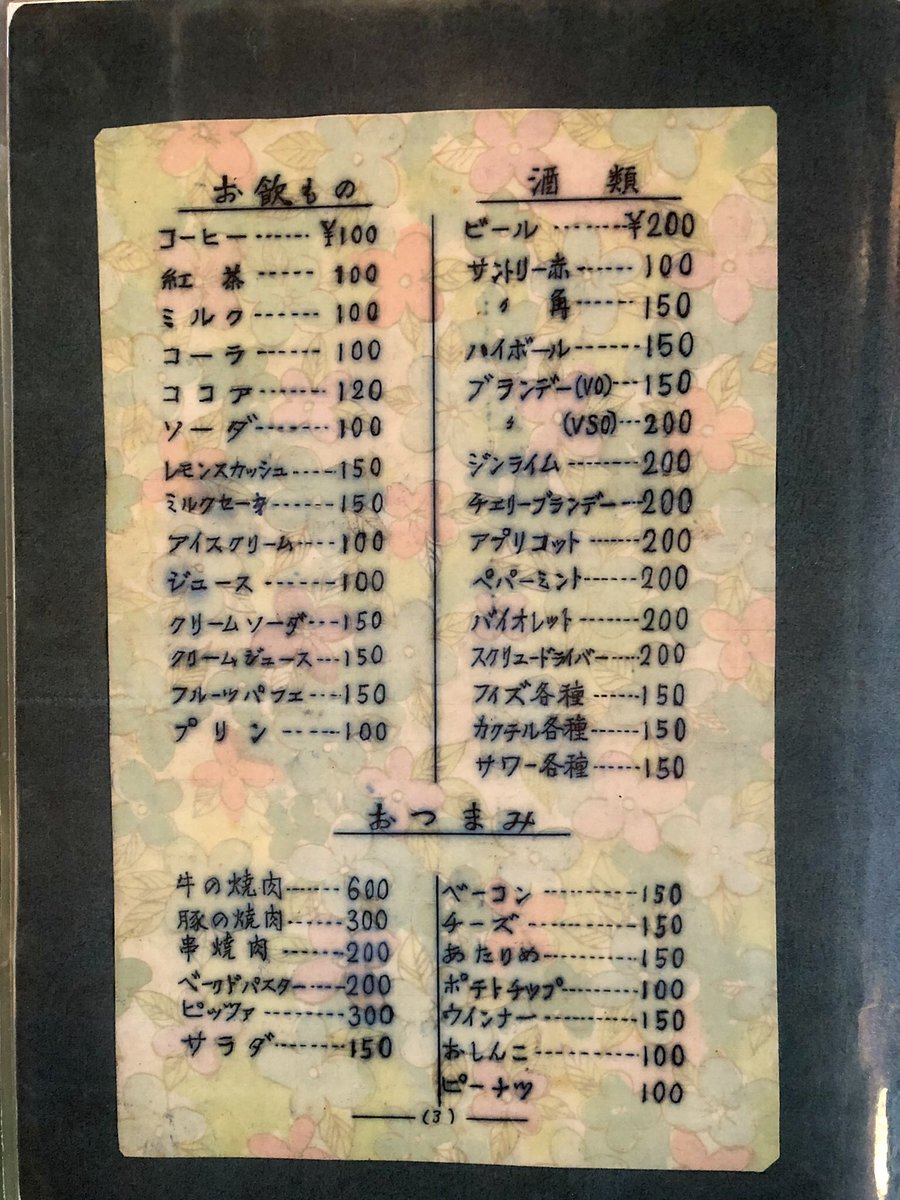 お飲もの
コーヒー------¥100
紅茶------100
ミルク------100
コーラ------100
ココア------120
ソーダ------100
レモンスカッシュ-----150
ミルクセーキ------150
アイスクリーム----100
ジュース------100
クリームソーダ---150
クリームジュース---150
フルーツパフェ---150
プリン-----100
酒類
ビール-------¥200
サントリー赤-----100
〃角-----150
ハイボール------150
ブランデー(VO)--150
〃(VSO)--200
ジンライム------200
チェリーブランデー--200
アプリコット-----200
ペパーミント-----200
バイオレット-----200
スクリュードライバー---200
フイズ各種-----150
カクテル各種----150
サワー各種-----150
おつまみ
牛の焼肉-----600
豚の焼肉-----300
串焼肉-----200
ベークドパスター---200
ピッツァ-------300
サラダ------150
ベーコン--------150
チーズ---------150
あたりめ-------150
ポテトチップ------100
ウインナー-------150
おしんこ--------100
ピーナツ 100
(3)